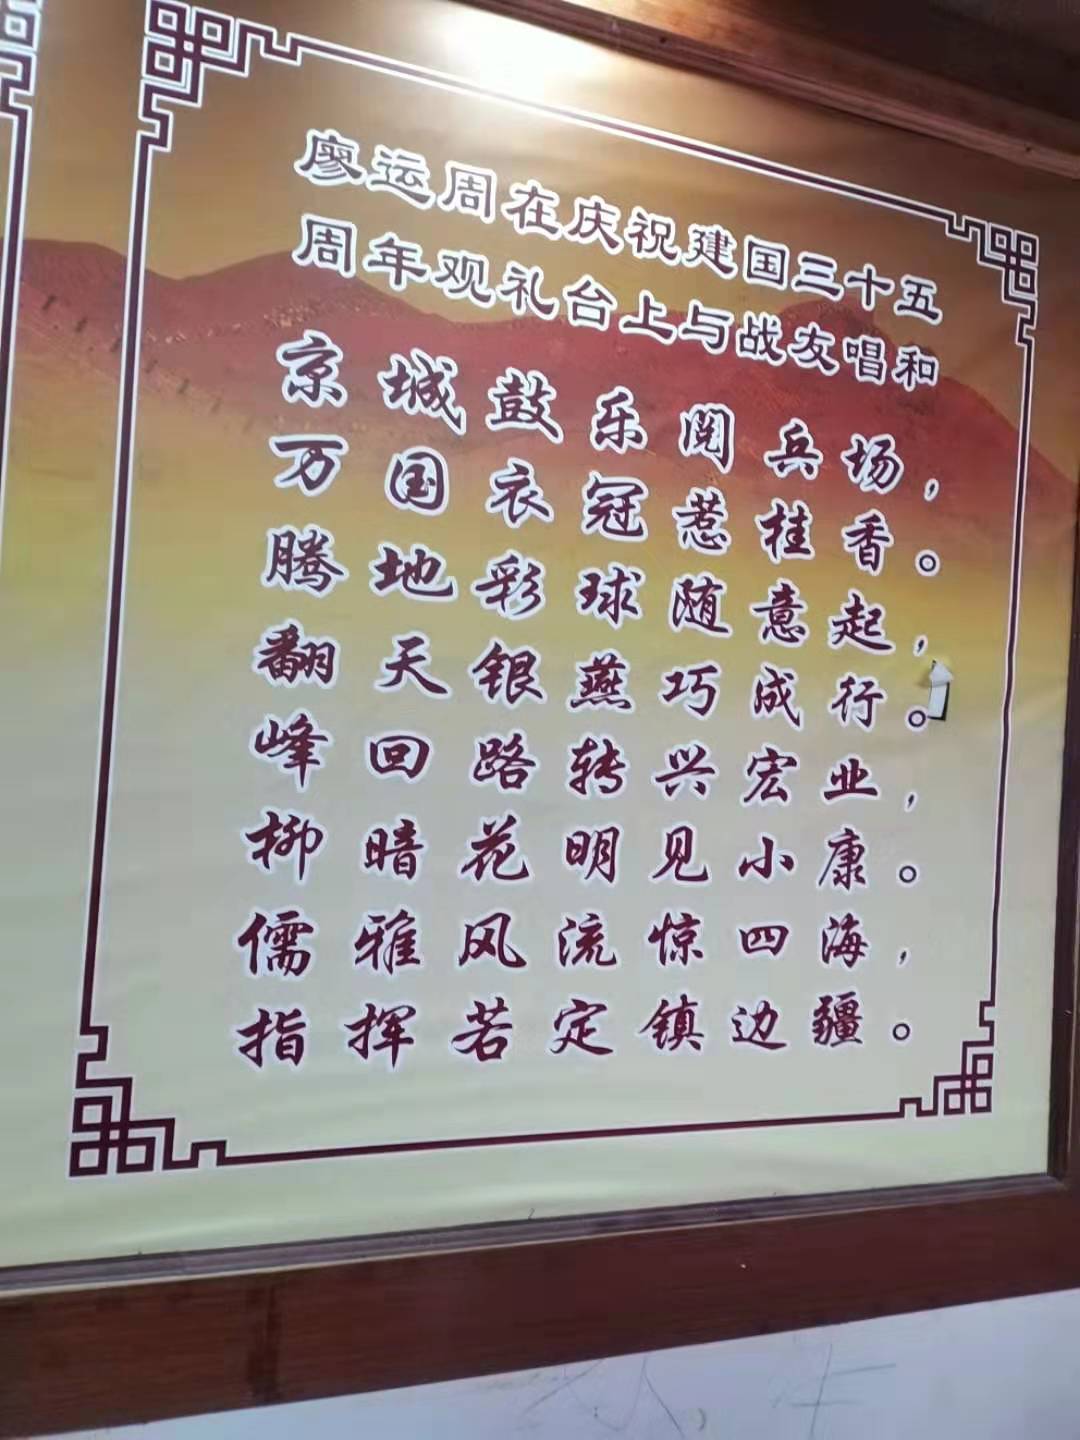 廖运周在庆祝建国三十五
周年观礼台上与战友唱和
京城鼓乐阅兵场，
万国衣冠惹桂香。
腾地彩球随意起，
翻天银燕巧成行。
峰回路转兴宏业，
柳暗花明见小康。
儒雅风流惊四海，
指挥若定镇边疆。